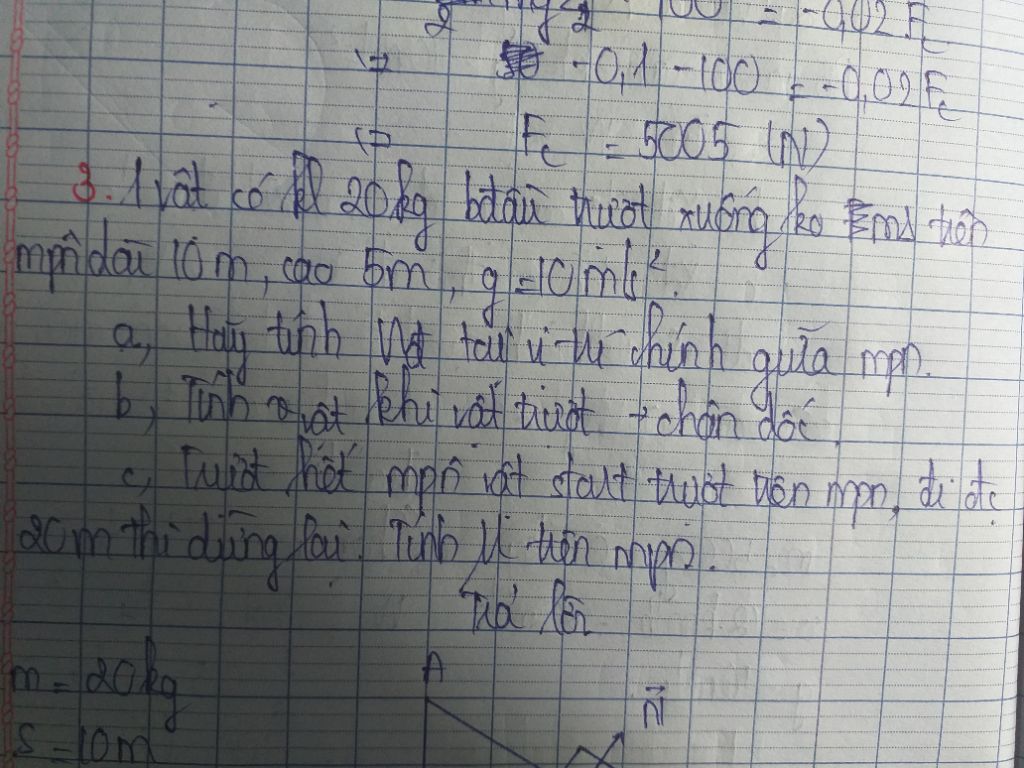 = -0,02 Fc
⇔ -0,1 - 100 = -0,02 Fc
⇔ Fc = 5005 (N)
3. 1 vật có kl 20kg bđầu trượt xuống ko ms trên
mpn dài 10m, cao 5m, g = 10 m/s².
a, Hãy tính Vvật tại vị trí chính giữa mpn.
b, Tính vvật khi vật trượt → chân dốc.
c, Trượt hết mpn vật start trượt trên mpn, đi đc
20m thì dừng lại. Tính μ trên mpn.
Trả lời
A
m = 20kg
N
s = 10m